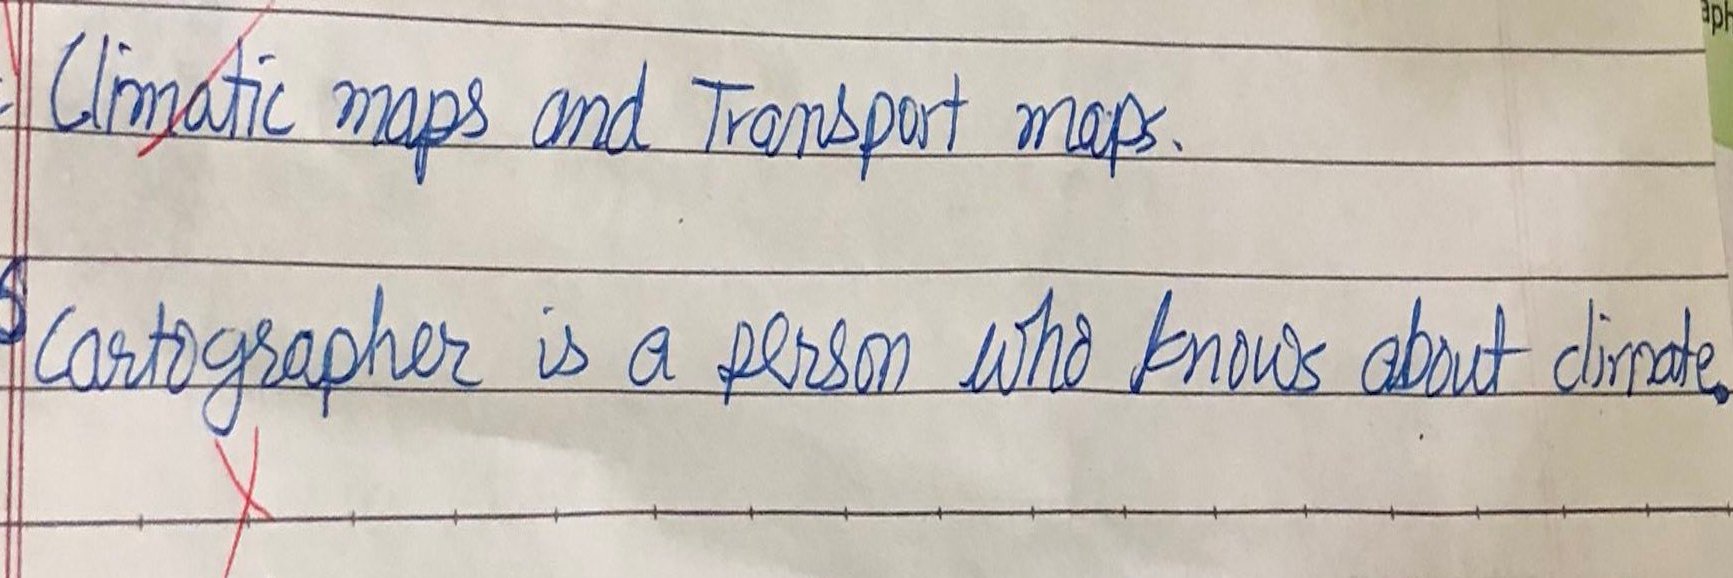 Climatic maps and Transport maps.
5 Cartographer is a person who knows about climate.